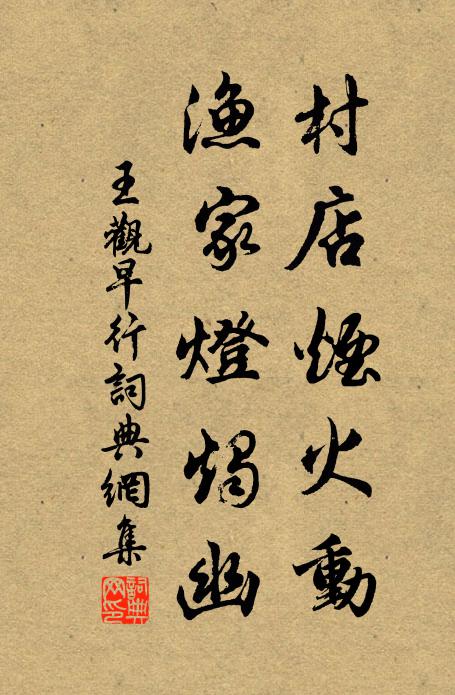 村店煙火動
漁家燈燭幽
王觀早行詞典網集
詞典網印